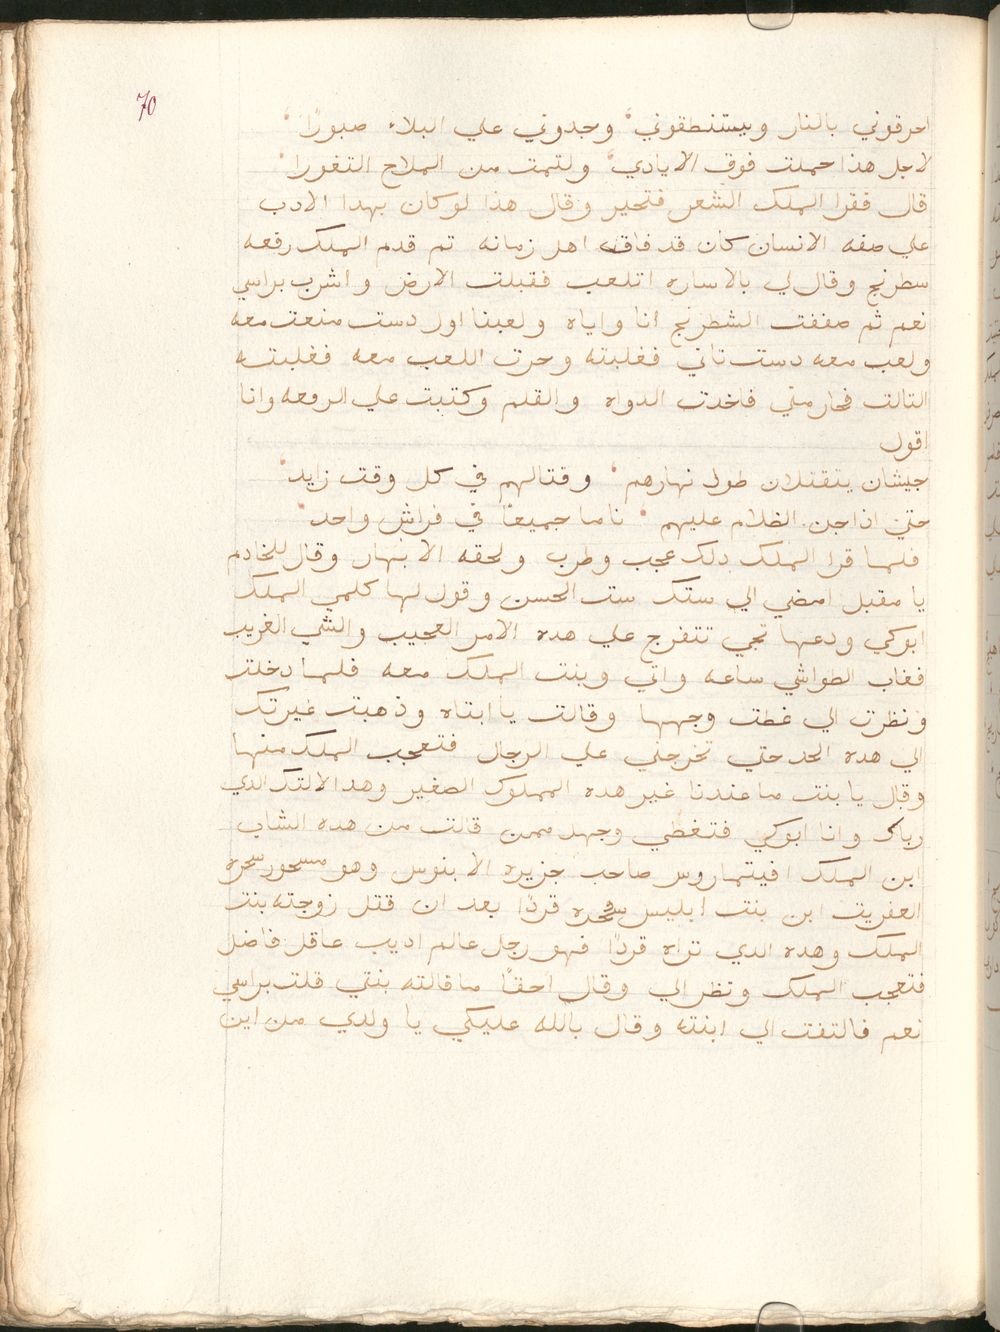 70
احرقوني بالنار ويستنطقوني وجدوني علي البلاء صبورًا
لاجل هذا حملت فوق الايادي ولتمت من الملاح التغورا
قال فقرا الملك الشعر فتحير وقال هذا لو كان بهدا الادب
علي صفه الانسان كان قد فاق اهل زمانه تم قدم الملك رقعه
سطرنج وقال لي بالاساره اتلعب فقبلت الارض واشرب براسي
نعم ثم صففت الشطرنج انا واياه ولعبنا اول دست منعت معه
ولعب معه دست تاني فغلبته وحرت اللعب معه فغلبته
التالت فحار مني فاخدت الدواه والقلم وكتبت علي الرمعه وانا
اقول
جيشان يتقتلان طول نهارهم وقتالهم في كل وقت زايد
حتي اذا جن الظلام عليهم ناما جميعًا في فراش واحد
فلما قرا الملك دلك عجب وطرب ولحقه الانبهار وقال للخادم
يا مقبل امضي الي ستك ست الحسن وقول لها كلمي الملك
ابوكي ودعها تجي تتفرج علي هده الامر العجيب والشي الغريب
فغاب الطواشي ساعه واتي وبنت الملك معه فلما دخلت
ونظرت الي غطت وجهها وقالت يا ابتاه وذهبت غيرتك
الي هده الحد حتي تخرجني علي الرجال فتعجب الملك منها
وقال يا بنت ما عندنا غير هده المملوك الصغير وهدا الالتك الدي
رباك وانا ابوكي فتغطي وجهد ممن قالت من هده الشاب
ابن الملك افيتماروس صاحب جزيره الابنوس وهو مسحور سحره
العفريت ابن بنت ابليس سحره قردًا بعد ان قتل زوجته بنت
الملك وهده الدي تراه قردًا فهو رجل عالم اديب عاقل فاضل
فتعجب الملك ونظر الي وقال احقًا ما قالته بنتي قلت براسي
نعم فالتفت الي ابنته وقال بالله عليكي يا ولدي من اين